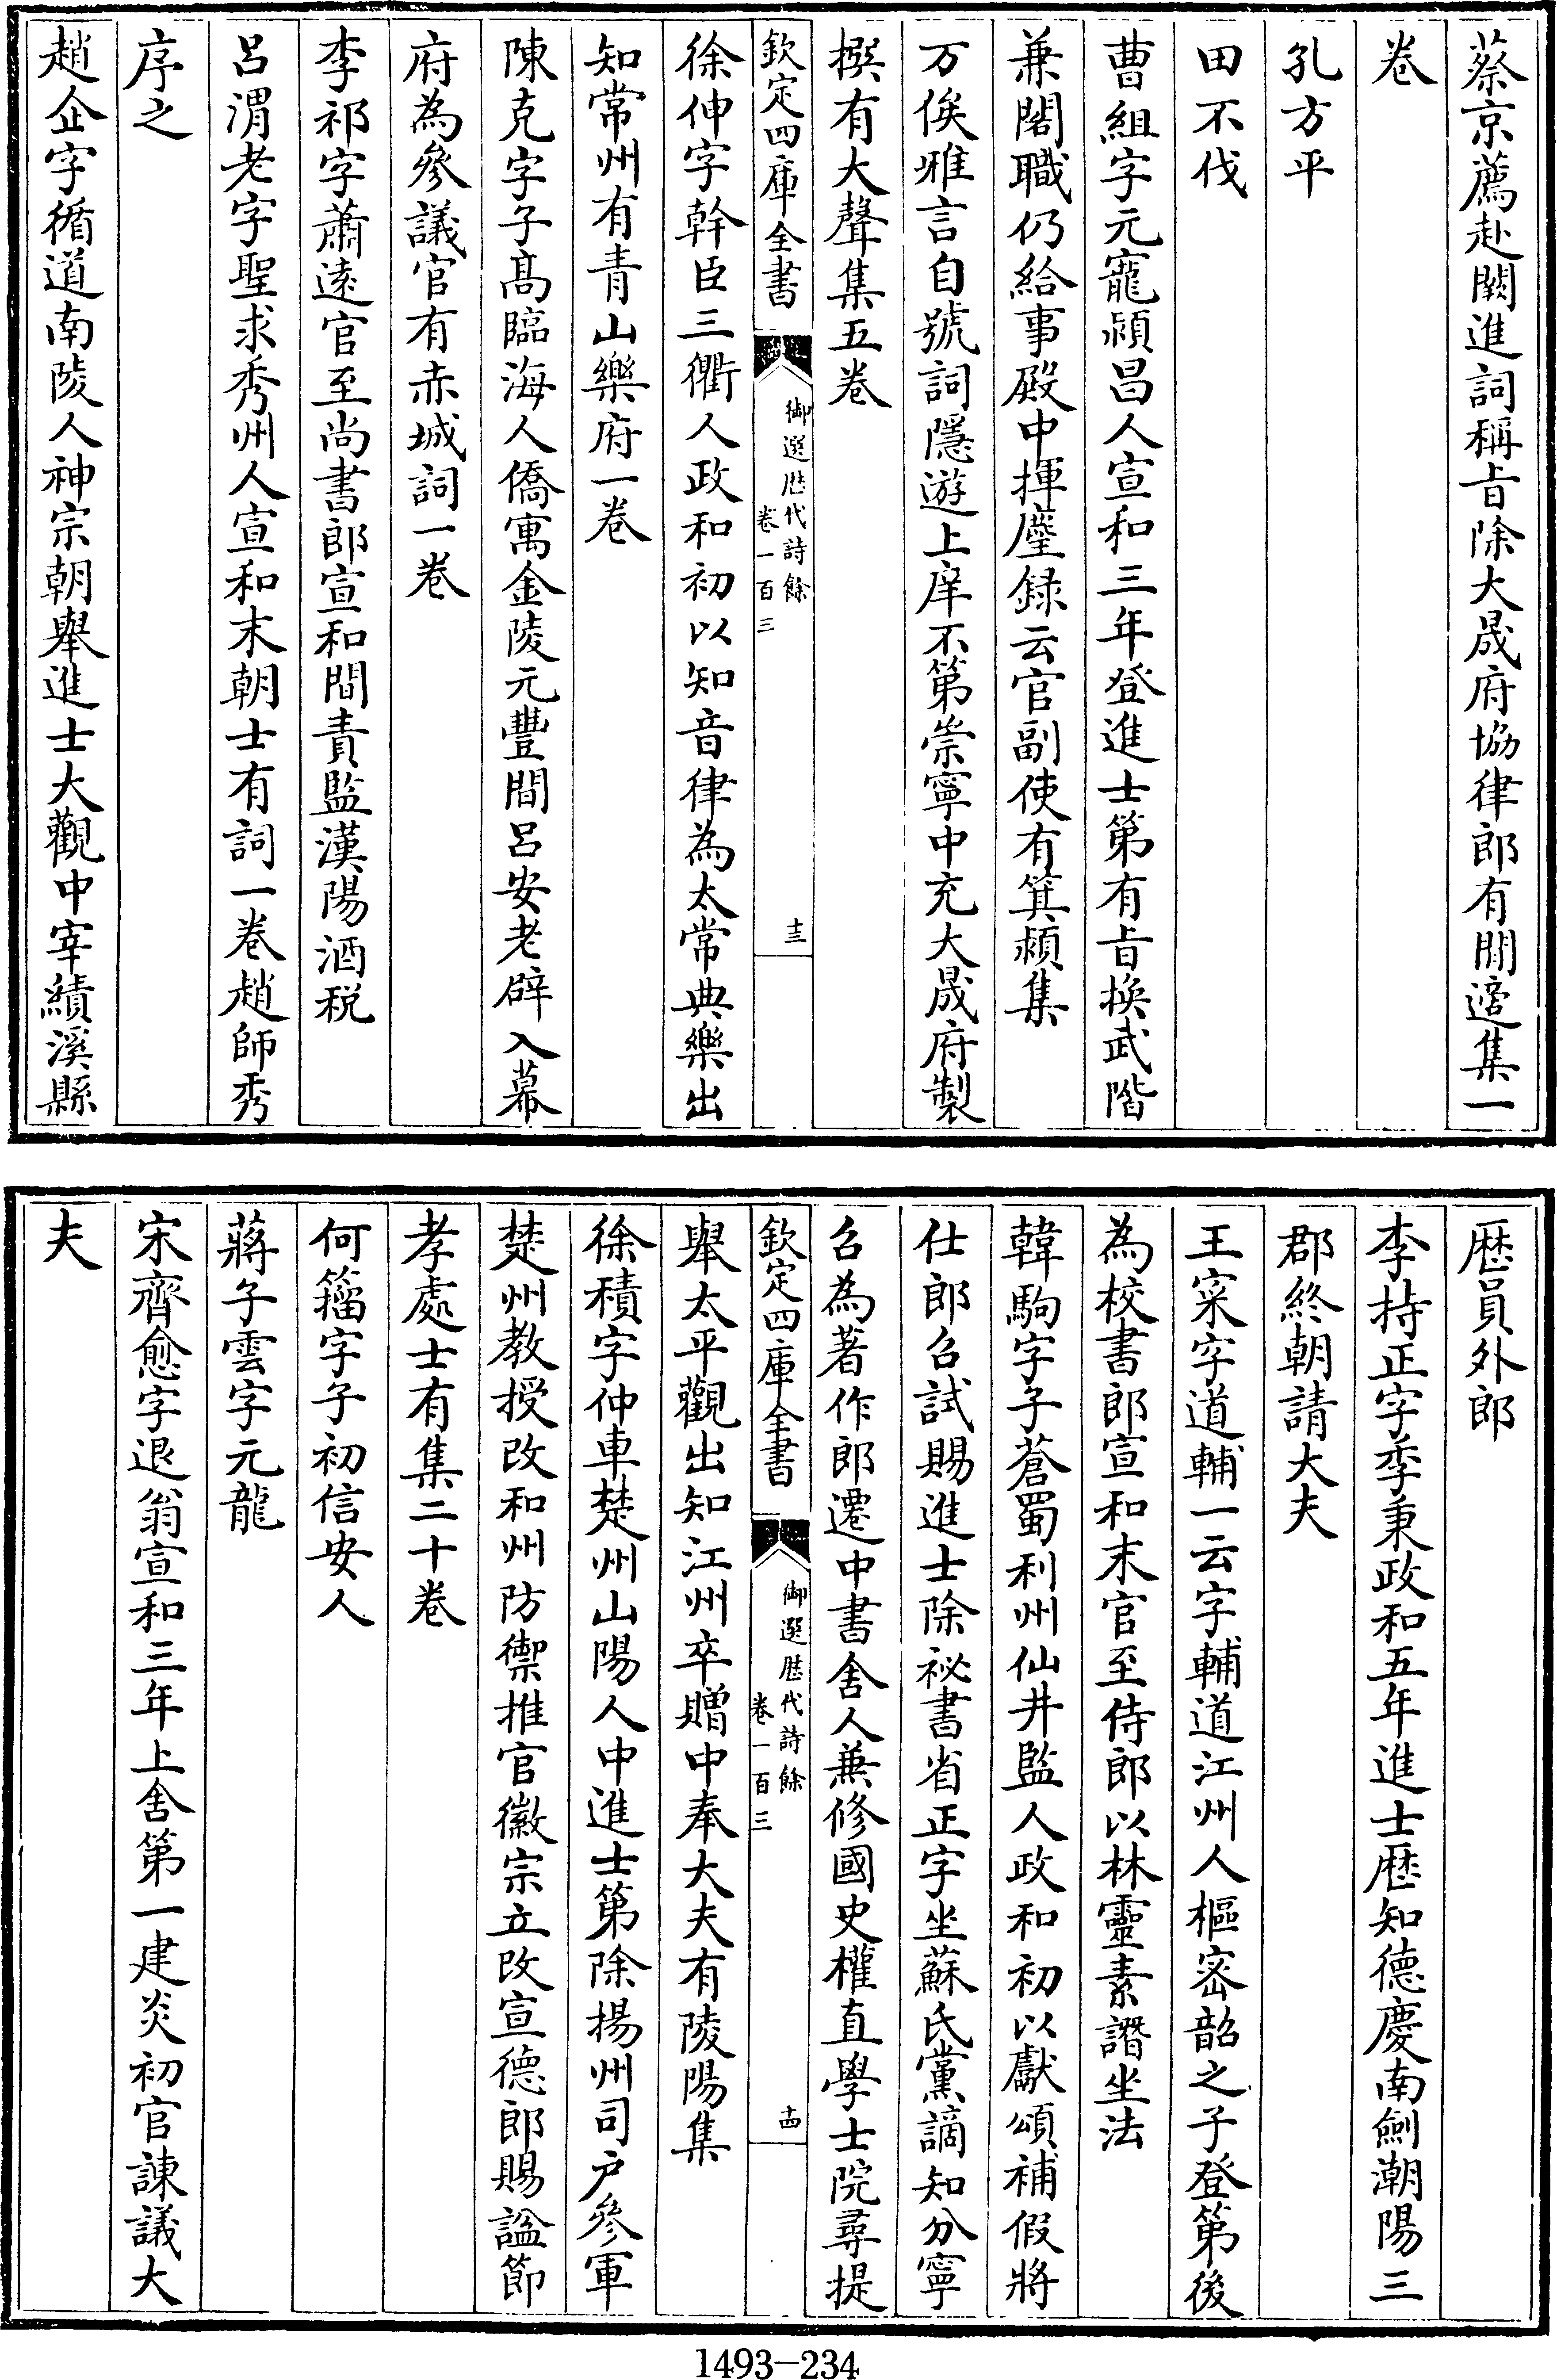 蔡京薦赴闕進詞稱㫖除大晟府協律郎有閒適集一
卷
孔方平
田不伐
曹組字元寵潁昌人宣和三年登進士第有㫖換武階
兼閣職仍給事殿中揮麈録云官副使有箕潁集
万俟雅言自號詞隱遊上庠不第崇寧中充大晟府製
撰有大聲集五卷
欽定四庫全書
御選歴代詩餘
卷一百三
十三
徐伸字幹臣三衢人政和初以知音律為太常典樂出
知常州有青山樂府一卷
陳克字子髙臨海人僑寓金陵元豐間呂安老辟入幕
府為參議官有赤城詞一卷
李祁字蕭遠官至尚書郎宣和間責監漢陽酒税
呂渭老字聖求秀州人宣和末朝士有詞一卷趙師秀
序之
趙企字循道南陵人神宗朝舉進士大觀中宰績溪縣
歴員外郎
李持正字季秉政和五年進士歴知德慶南劍潮陽三
郡終朝請大夫
王寀字道輔一云字輔道江州人樞宻韶之子登第後
為校書郎宣和末官至侍郎以林靈素譖坐法
韓駒字子蒼蜀利州仙井監人政和初以獻頌補假將
仕郎召試賜進士除祕書省正字坐蘇氏黨謫知分寧
召為著作郎遷中書舍人兼修國史權直學士院尋提
欽定四庫全書
御選歴代詩餘
卷一百三
十四
舉太平觀出知江州卒贈中奉大夫有陵陽集
徐積字仲車楚州山陽人中進士第除揚州司户參軍
楚州教授改和州防禦推官徽宗立改宣德郎賜諡節
孝處士有集二十卷
何籀字子初信安人
蔣子雲字元龍
宋齊愈字退翁宣和三年上舍第一建炎初官諫議大
夫
1493-234